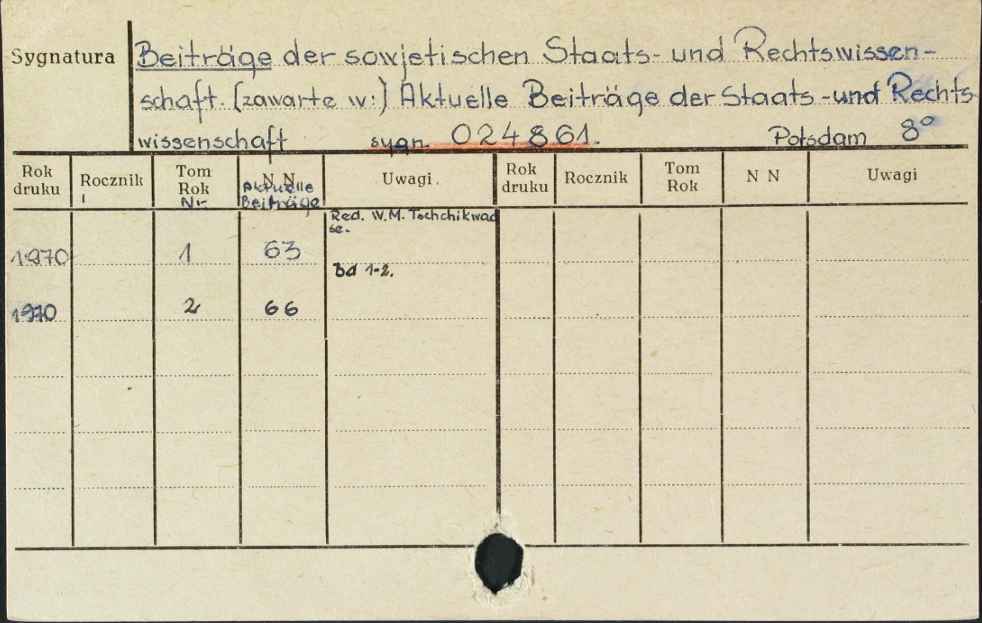 Sygnatura Beiträge der sowjetischen Staats- und Rechtswissen-
schaft. [zawarte w:] Aktuelle Beiträge der Staats- und Rechts-
wissenschaft sygn. 024861. Potsdam 8°
Rok druku Rocznik Tom Rok Nr. N N Aktuelle Beiträge Uwagi Rok druku Rocznik Tom Rok N N Uwagi
Red. W.M. Tschchikwad
se.
1970 1 63
Bd 1-2.
1970 2 66